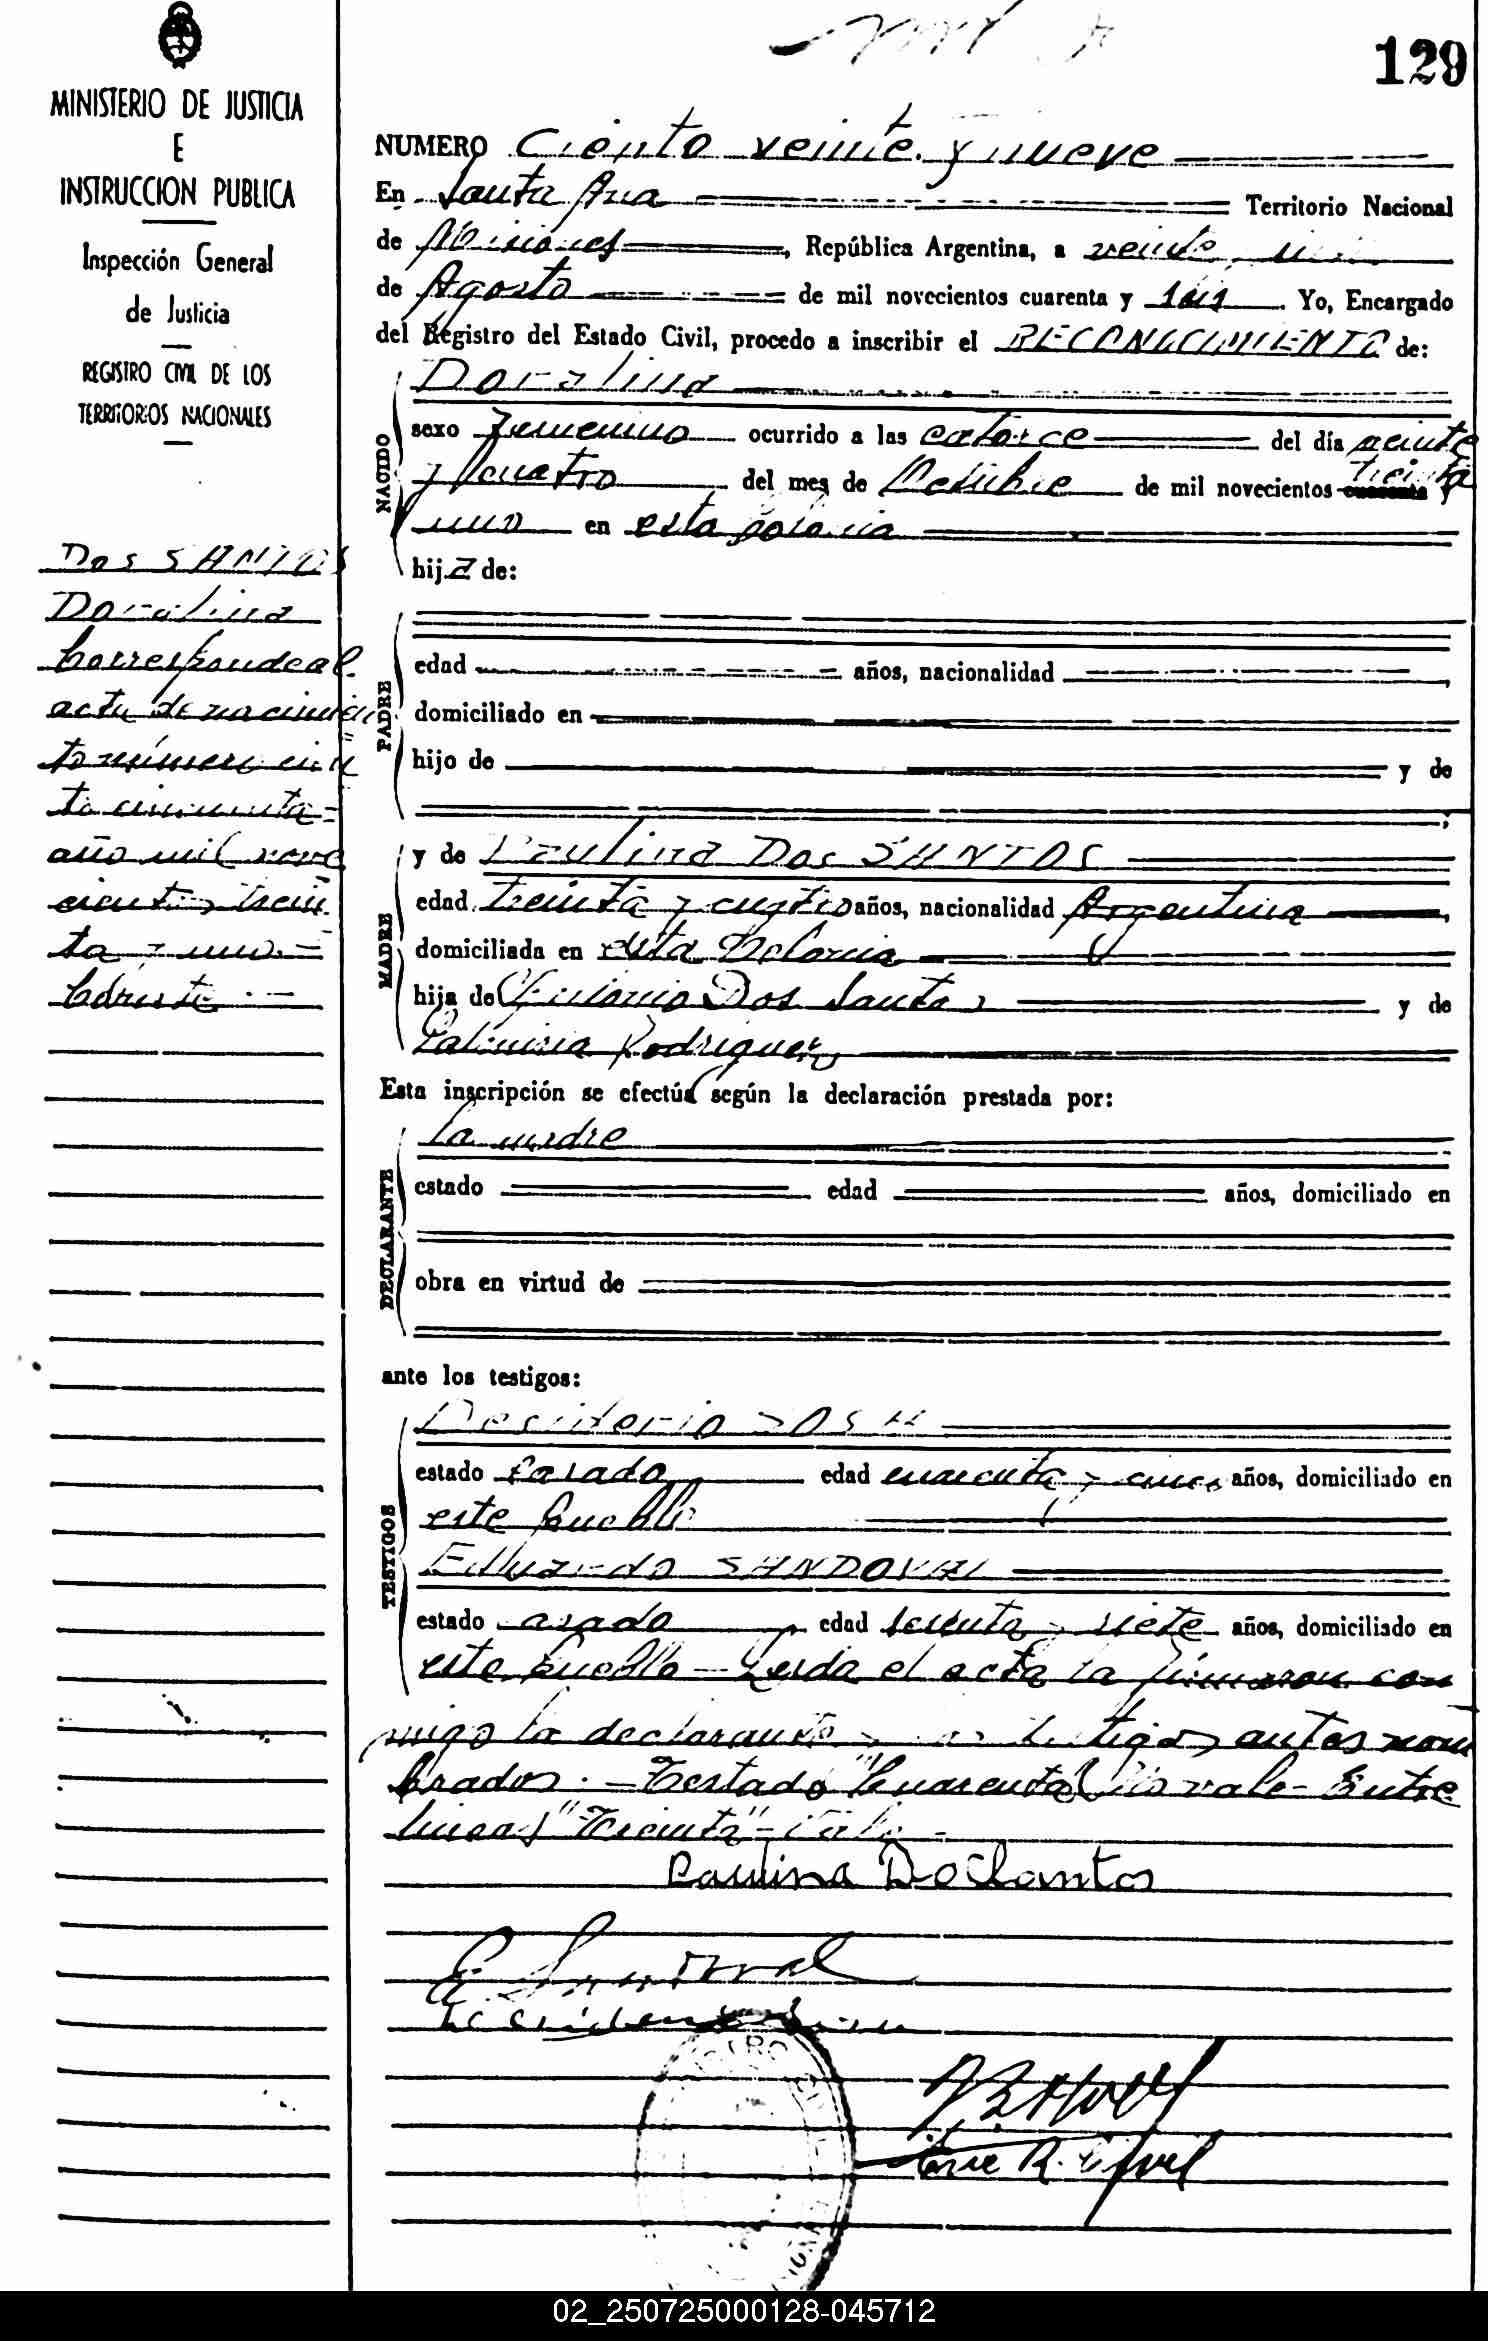 129
MINISTERIO DE JUSTICIA
E
INSTRUCCION PUBLICA
Inspección General
de Justicia
REGISTRO CIVIL DE LOS
TERRITORIOS NACIONALES
Dos SANTOS
Doralina
Corresponde al
acta de nacimien
to número cien
to cincuenta
año mil nove
ciento trein
ta y uno.
NUMERO Ciento veinte y nueve
En Santa Ana Territorio Nacional
de Misiones, República Argentina, a veinte
de Agosto de mil novecientos cuarenta y seis. Yo, Encargado
del Registro del Estado Civil, procedo a inscribir el RECONOCIMIENTO de:
NACIDO
Doralina
sexo femenino ocurrido a las catorce del día veinte
y cuatro del mes de Octubre de mil novecientos cuarenta treinta y
uno en esta Colonia
hija de:
PADRE
edad años, nacionalidad
domiciliado en
hijo de y de
MADRE
y de Paulina Dos SANTOS
edad treinta y cuatro años, nacionalidad Argentina
domiciliada en esta Colonia
hija de Dos Santos y de
Rodriguez
Esta inscripción se efectúa según la declaración prestada por:
DECLARANTE
La madre
estado edad años, domiciliado en
obra en virtud de
ante los testigos:
TESTIGOS
Desiderio
estado casado edad cuarenta y cinco años, domiciliado en
este pueblo
Eduardo SANDOVAL
estado casado edad y siete años, domiciliado en
este pueblo - Leida el acta la firmaron con
migo la declarante y los testigos antes nom
brados. - Testado "cuarenta" No vale - Entre
lineas "Treinta" - Vale -
Paulina DoSantos
E. Sandoval
REGISTRO
02_250725000128-045712